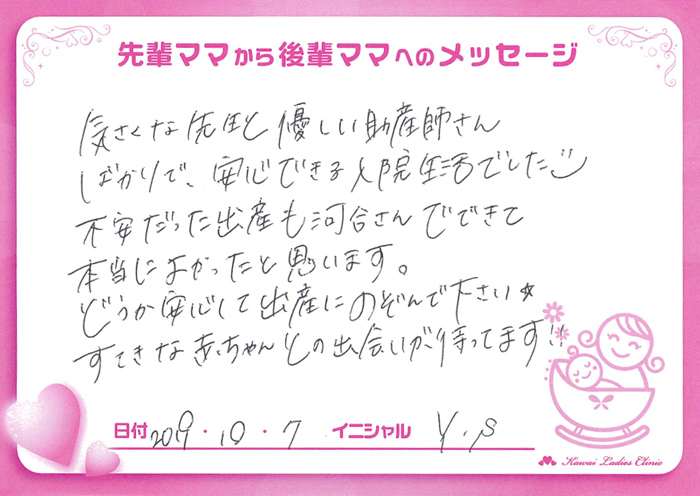 先輩ママから後輩ママへのメッセージ
気さくな先生と優しい助産師さん
ばかりで、安心できる入院生活でした
不安だった出産も河合さんでできて
本当によかったと思います。
どうか安心して出産にのぞんで下さい☆
すてきな赤ちゃんとの出会いが待ってます!!
日付 2019・10・7 イニシャル Y.S
Kawai Ladies Clinic